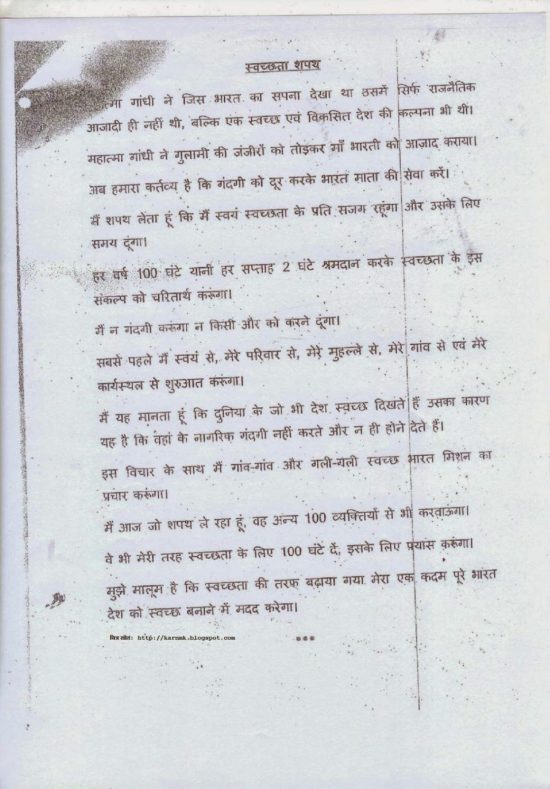 स्वच्छता शपथ
त्मा गांधी ने जिस भारत का सपना देखा था उसमें सिर्फ राजनैतिक
आजादी ही नहीं थी, बल्कि एक स्वच्छ एवं विकसित देश की कल्पना भी थी।
महात्मा गांधी ने गुलामी की जंजीरों को तोड़कर माँ भारती को आज़ाद कराया।
अब हमारा कर्तव्य है कि गंदगी को दूर करके भारत माता की सेवा करें।
मैं शपथ लेता हूं कि मैं स्वयं स्वच्छता के प्रति सजग रहूंगा और उसके लिए
समय दूंगा।
हर वर्ष 100 घंटे यानी हर सप्ताह 2 घंटे श्रमदान करके स्वच्छता के इस
संकल्प को चरितार्थ करूंगा।
मैं न गंदगी करूंगा न किसी और को करने दूंगा।
सबसे पहले मैं स्वयं से, मेरे परिवार से, मेरे मुहल्ले से, मेरे गांव से एवं मेरे
कार्यस्थल से शुरुआत करूंगा।
मैं यह मानता हूं कि दुनिया के जो भी देश स्वच्छ दिखते हैं उसका कारण
यह है कि वहां के नागरिक गंदगी नहीं करते और न ही होने देते हैं।
इस विचार के साथ मैं गांव-गांव और गली-गली स्वच्छ भारत मिशन का
प्रचार करूंगा।
मैं आज जो शपथ ले रहा हूं, वह अन्य 100 व्यक्तियों से भी करवाऊंगा।
वे भी मेरी तरह स्वच्छता के लिए 100 घंटे दें, इसके लिए प्रयास करूंगा।
मुझे मालूम है कि स्वच्छता की तरफ बढ़ाया गया मेरा एक कदम पूरे भारत
देश को स्वच्छ बनाने में मदद करेगा।
http://karnmk.blogspot.com ***